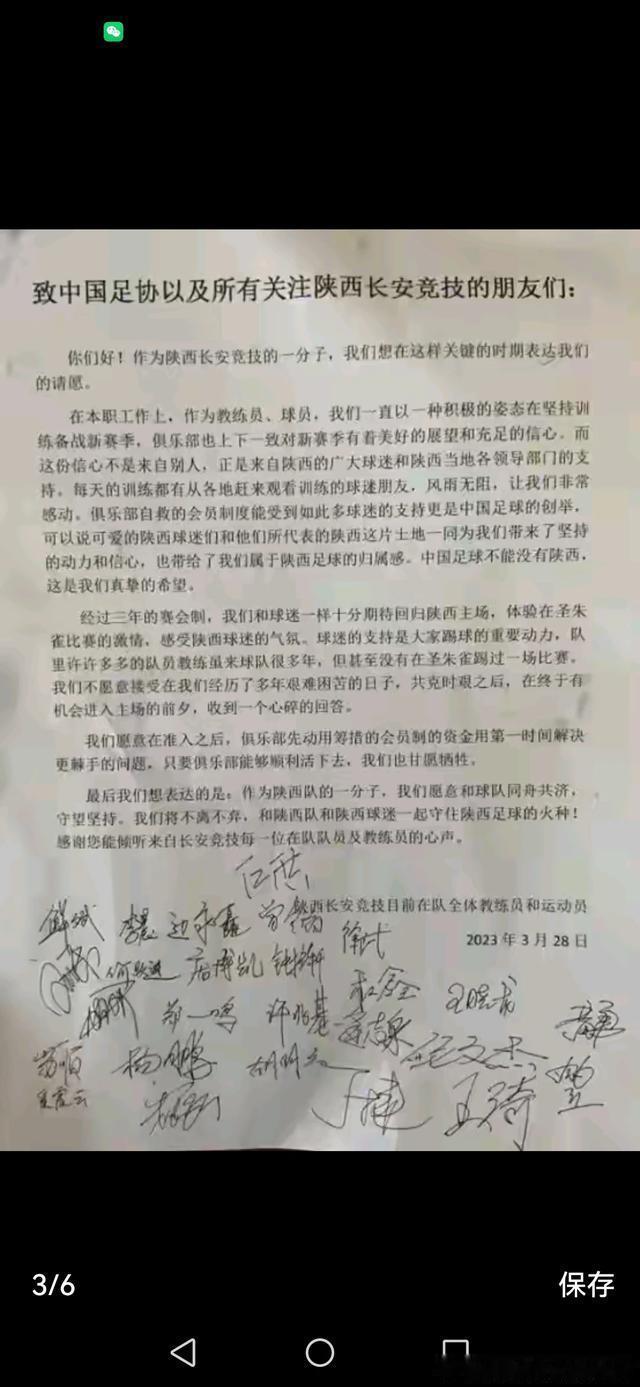 致中国足协以及所有关注陕西长安竞技的朋友们：
你们好！作为陕西长安竞技的一分子，我们想在这样关键的时期表达我们
的请愿。
在本职工作上，作为教练员、球员，我们一直以一种积极的姿态在坚持训
练备战新赛季，俱乐部也上下一致对新赛季有着美好的展望和充足的信心。而
这份信心不是来自别人，正是来自陕西的广大球迷和陕西当地各领导部门的支
持。每天的训练都有从各地赶来观看训练的球迷朋友，风雨无阻，让我们非常
感动。俱乐部自救的会员制度能受到如此多球迷的支持更是中国足球的创举，
可以说可爱的陕西球迷们和他们所代表的陕西这片土地一同为我们带来了坚持
的动力和信心，也带给了我们属于陕西足球的归属感。中国足球不能没有陕西，
这是我们真挚的希望。
经过三年的赛会制，我们和球迷一样十分期待回归陕西主场，体验在圣朱
雀比赛的激情，感受陕西球迷的气氛。球迷的支持是大家踢球的重要动力，队
里许许多多的队员教练虽来球队很多年，但甚至没有在圣朱雀踢过一场比赛。
我们不愿意接受在我们经历了多年艰难困苦的日子，共克时艰之后，在终于有
机会进入主场的前夕，收到一个心碎的回答。
我们愿意在准入之后，俱乐部先动用筹措的会员制的资金用第一时间解决
更棘手的问题，只要俱乐部能够顺利活下去，我们也甘愿牺牲。
最后我们想表达的是：作为陕西队的一分子，我们愿意和球队同舟共济，
守望坚持。我们将不离不弃，和陕西队和陕西球迷一起守住陕西足球的火种！
感谢您能倾听来自长安竞技每一位在队队员及教练员的心声。
陕西长安竞技目前在队全体教练员和运动员
2023 年 3 月 28 日
郑一鸣
杨鹏
王琦
3/6
保存